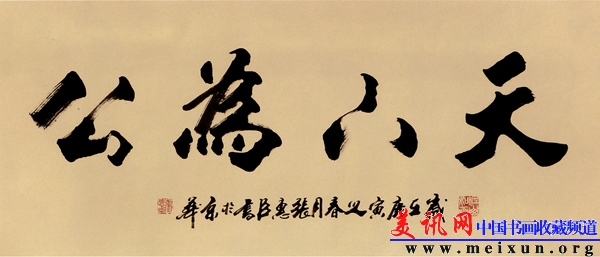 天下為公
歲在庚寅之春月張惠臣書於京華
美讯网 中国书画收藏频道
www.meixun.org